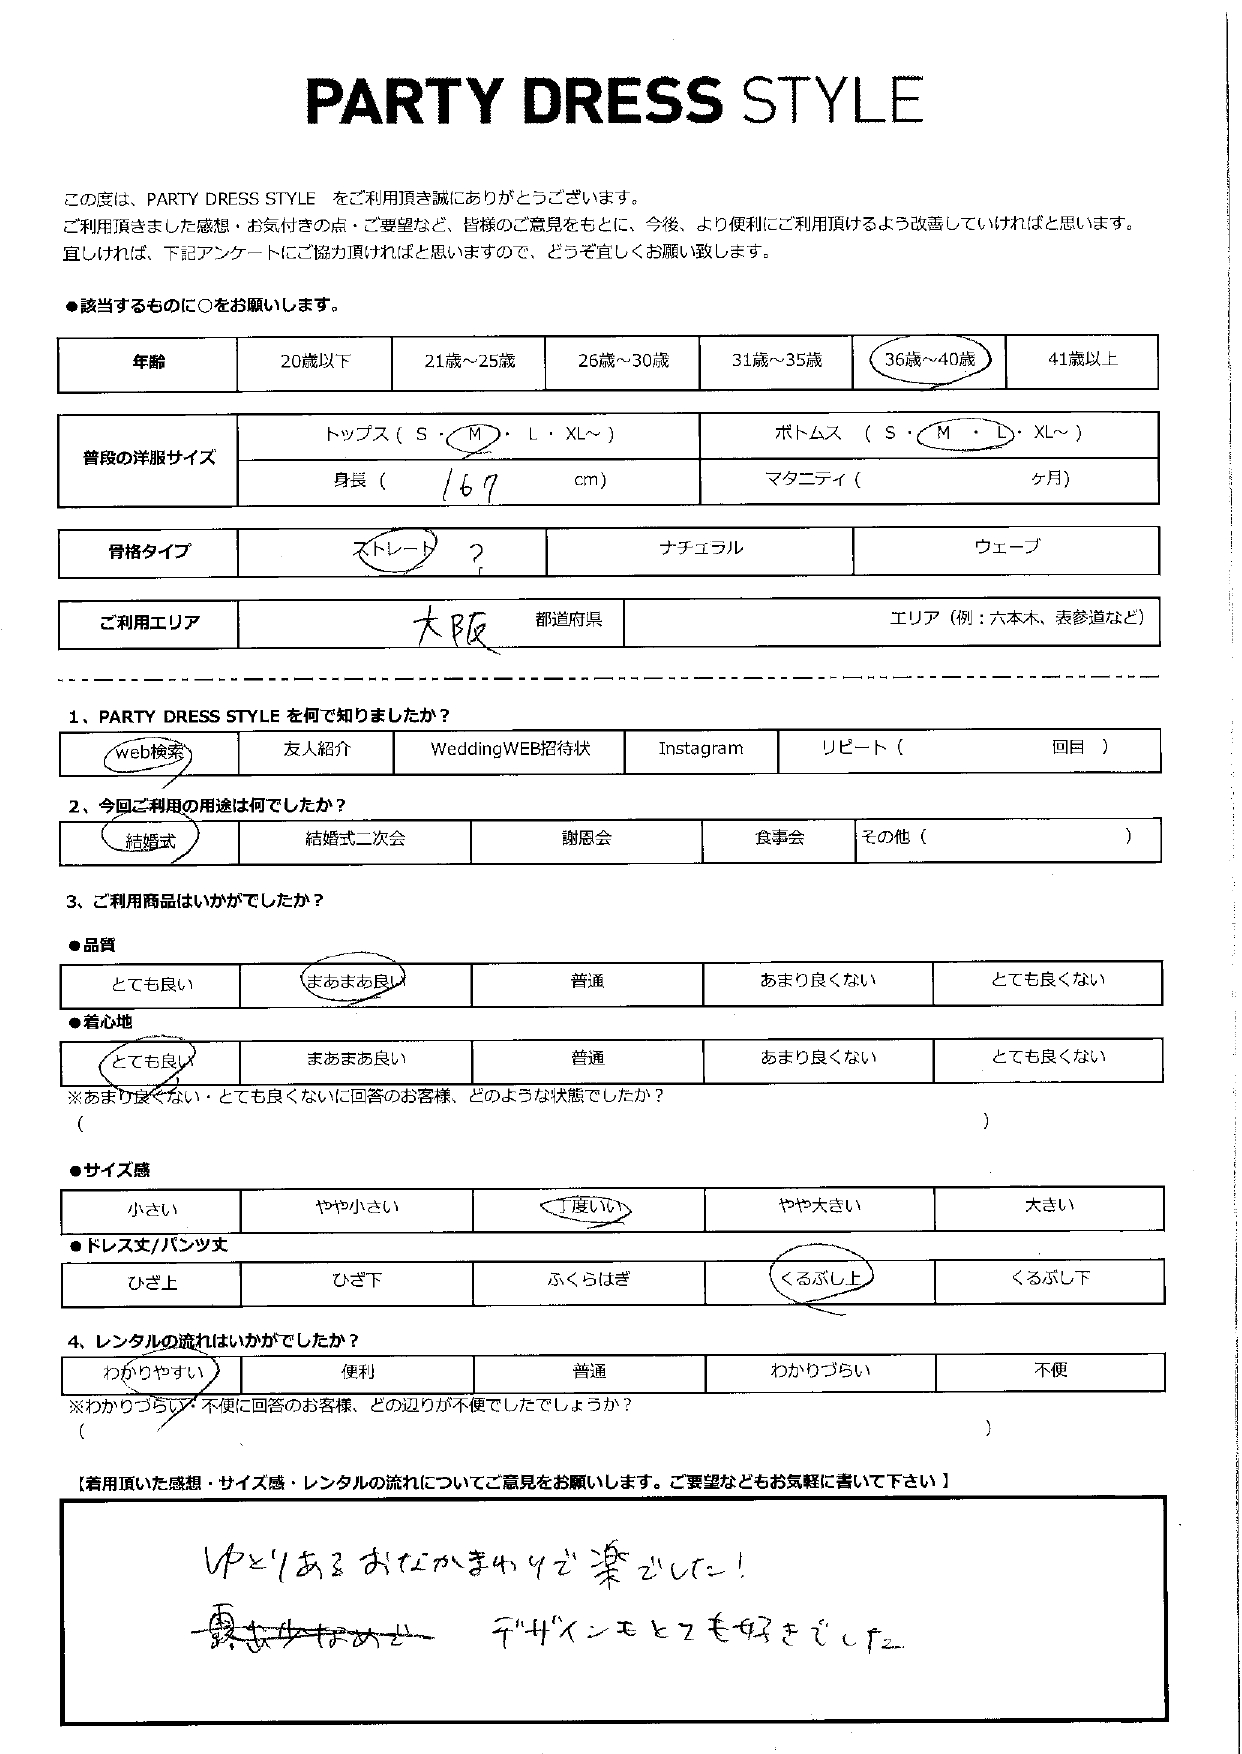 PARTY DRESS STYLE
この度は、PARTY DRESS STYLE をご利用頂き誠にありがとうございます。
ご利用頂きました感想・お気付きの点・ご要望など、皆様のご意見をもとに、今後、より便利にご利用頂けるよう改善していければと思います。
宜しければ、下記アンケートにご協力頂ければと思いますので、どうぞ宜しくお願い致します。
●該当するものに○をお願いします。
年齢 20歳以下 21歳～25歳 26歳～30歳 31歳～35歳 36歳～40歳 41歳以上
普段の洋服サイズ
トップス ( S ・ M ・ L ・ XL～ ) ボトムス ( S ・ M ・ L ・ XL～ )
身長 ( 167 cm) マタニティ ( ケ月)
骨格タイプ ストレート ? ナチュラル ウェーブ
ご利用エリア 大阪 都道府県 エリア (例：六本木、表参道など)
1、PARTY DRESS STYLE を何で知りましたか？
web検索 友人紹介 WeddingWEB招待状 Instagram リピート ( 回目 )
2、今回ご利用の用途は何でしたか？
結婚式 結婚式二次会 謝恩会 食事会 その他 ( )
3、ご利用商品はいかがでしたか？
●品質
とても良い まあまあ良い 普通 あまり良くない とても良くない
●着心地
とても良い まあまあ良い 普通 あまり良くない とても良くない
※あまり良くない・とても良くないに回答のお客様、どのような状態でしたか？
( )
●サイズ感
小さい やや小さい 丁度いい やや大きい 大きい
●ドレス丈/パンツ丈
ひざ上 ひざ下 ふくらはぎ くるぶし上 くるぶし下
4、レンタルの流れはいかがでしたか？
わかりやすい 便利 普通 わかりづらい 不便
※わかりづらい・不便に回答のお客様、どの辺りが不便でしたでしょうか？
( )
【着用頂いた感想・サイズ感・レンタルの流れについてご意見をお願いします。ご要望などもお気軽に書いて下さい 】
ゆとりあるおなかまわりで楽でした！
デザインもとても好きでした